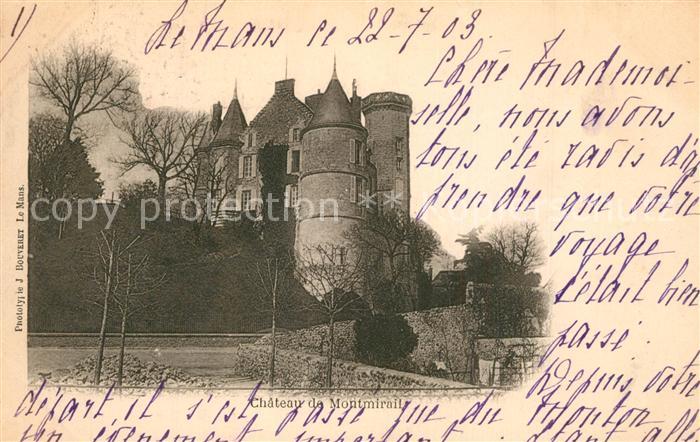 1)
Le Mans ce 22-7-03.
Chère Mademoi-
selle, nous avons
tous été ravis d'ap
prendre que votre
voyage
s'était bien
passé.
Depuis votre
départ, il s'est passé que du Menton
un événement important
Phototypie J. BOUVERET Le Mans.
Château de Montmirail
copyright